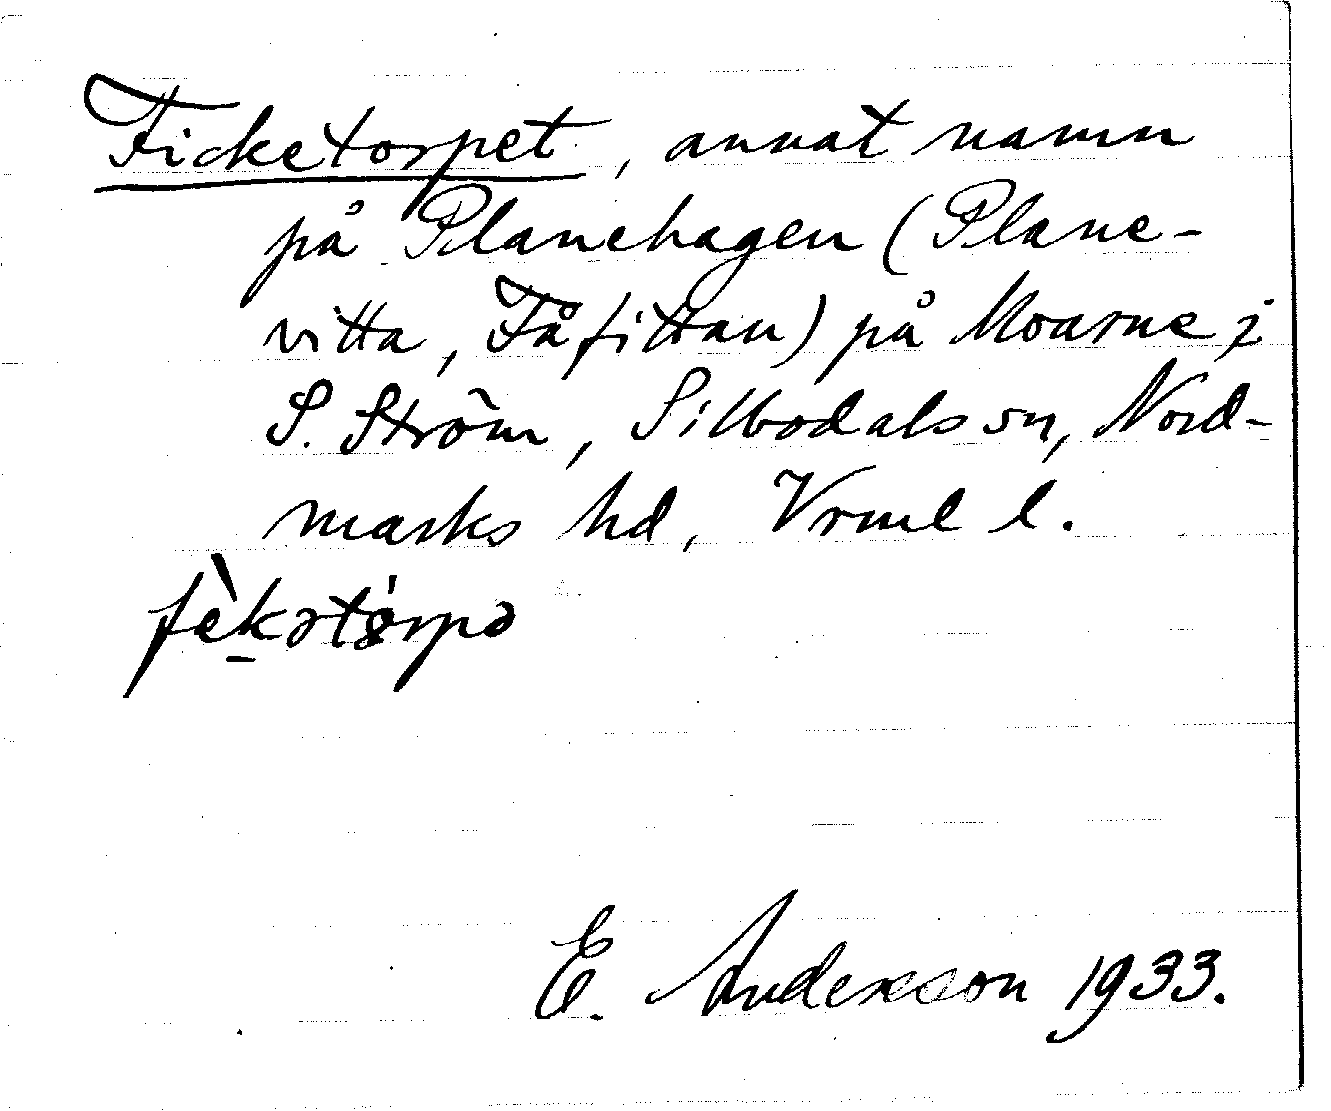 Ficketorpet, annat namn
på Planehagen (Plane-
vitta, Fåfittan) på Moarne i
S. Ström, Silbodals sn, Nord-
marks hd, Vrml l.
fèkətɵ́rpə
E. Andersson 1933.